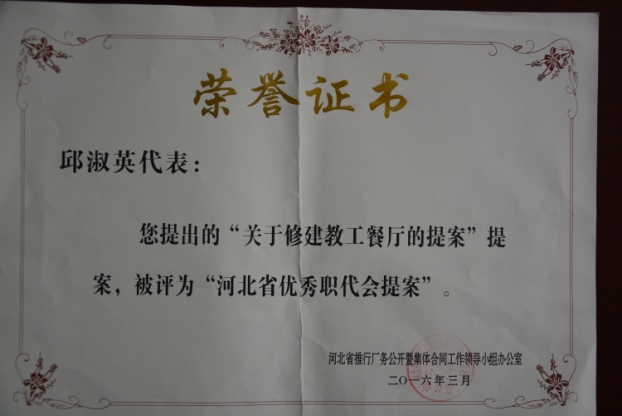 荣誉证书
邱淑英代表：
您提出的“关于修建教工餐厅的提案”提
案，被评为“河北省优秀职代会提案”。
河北省推行厂务公开暨集体合同工作领导小组办公室
二〇一六年三月